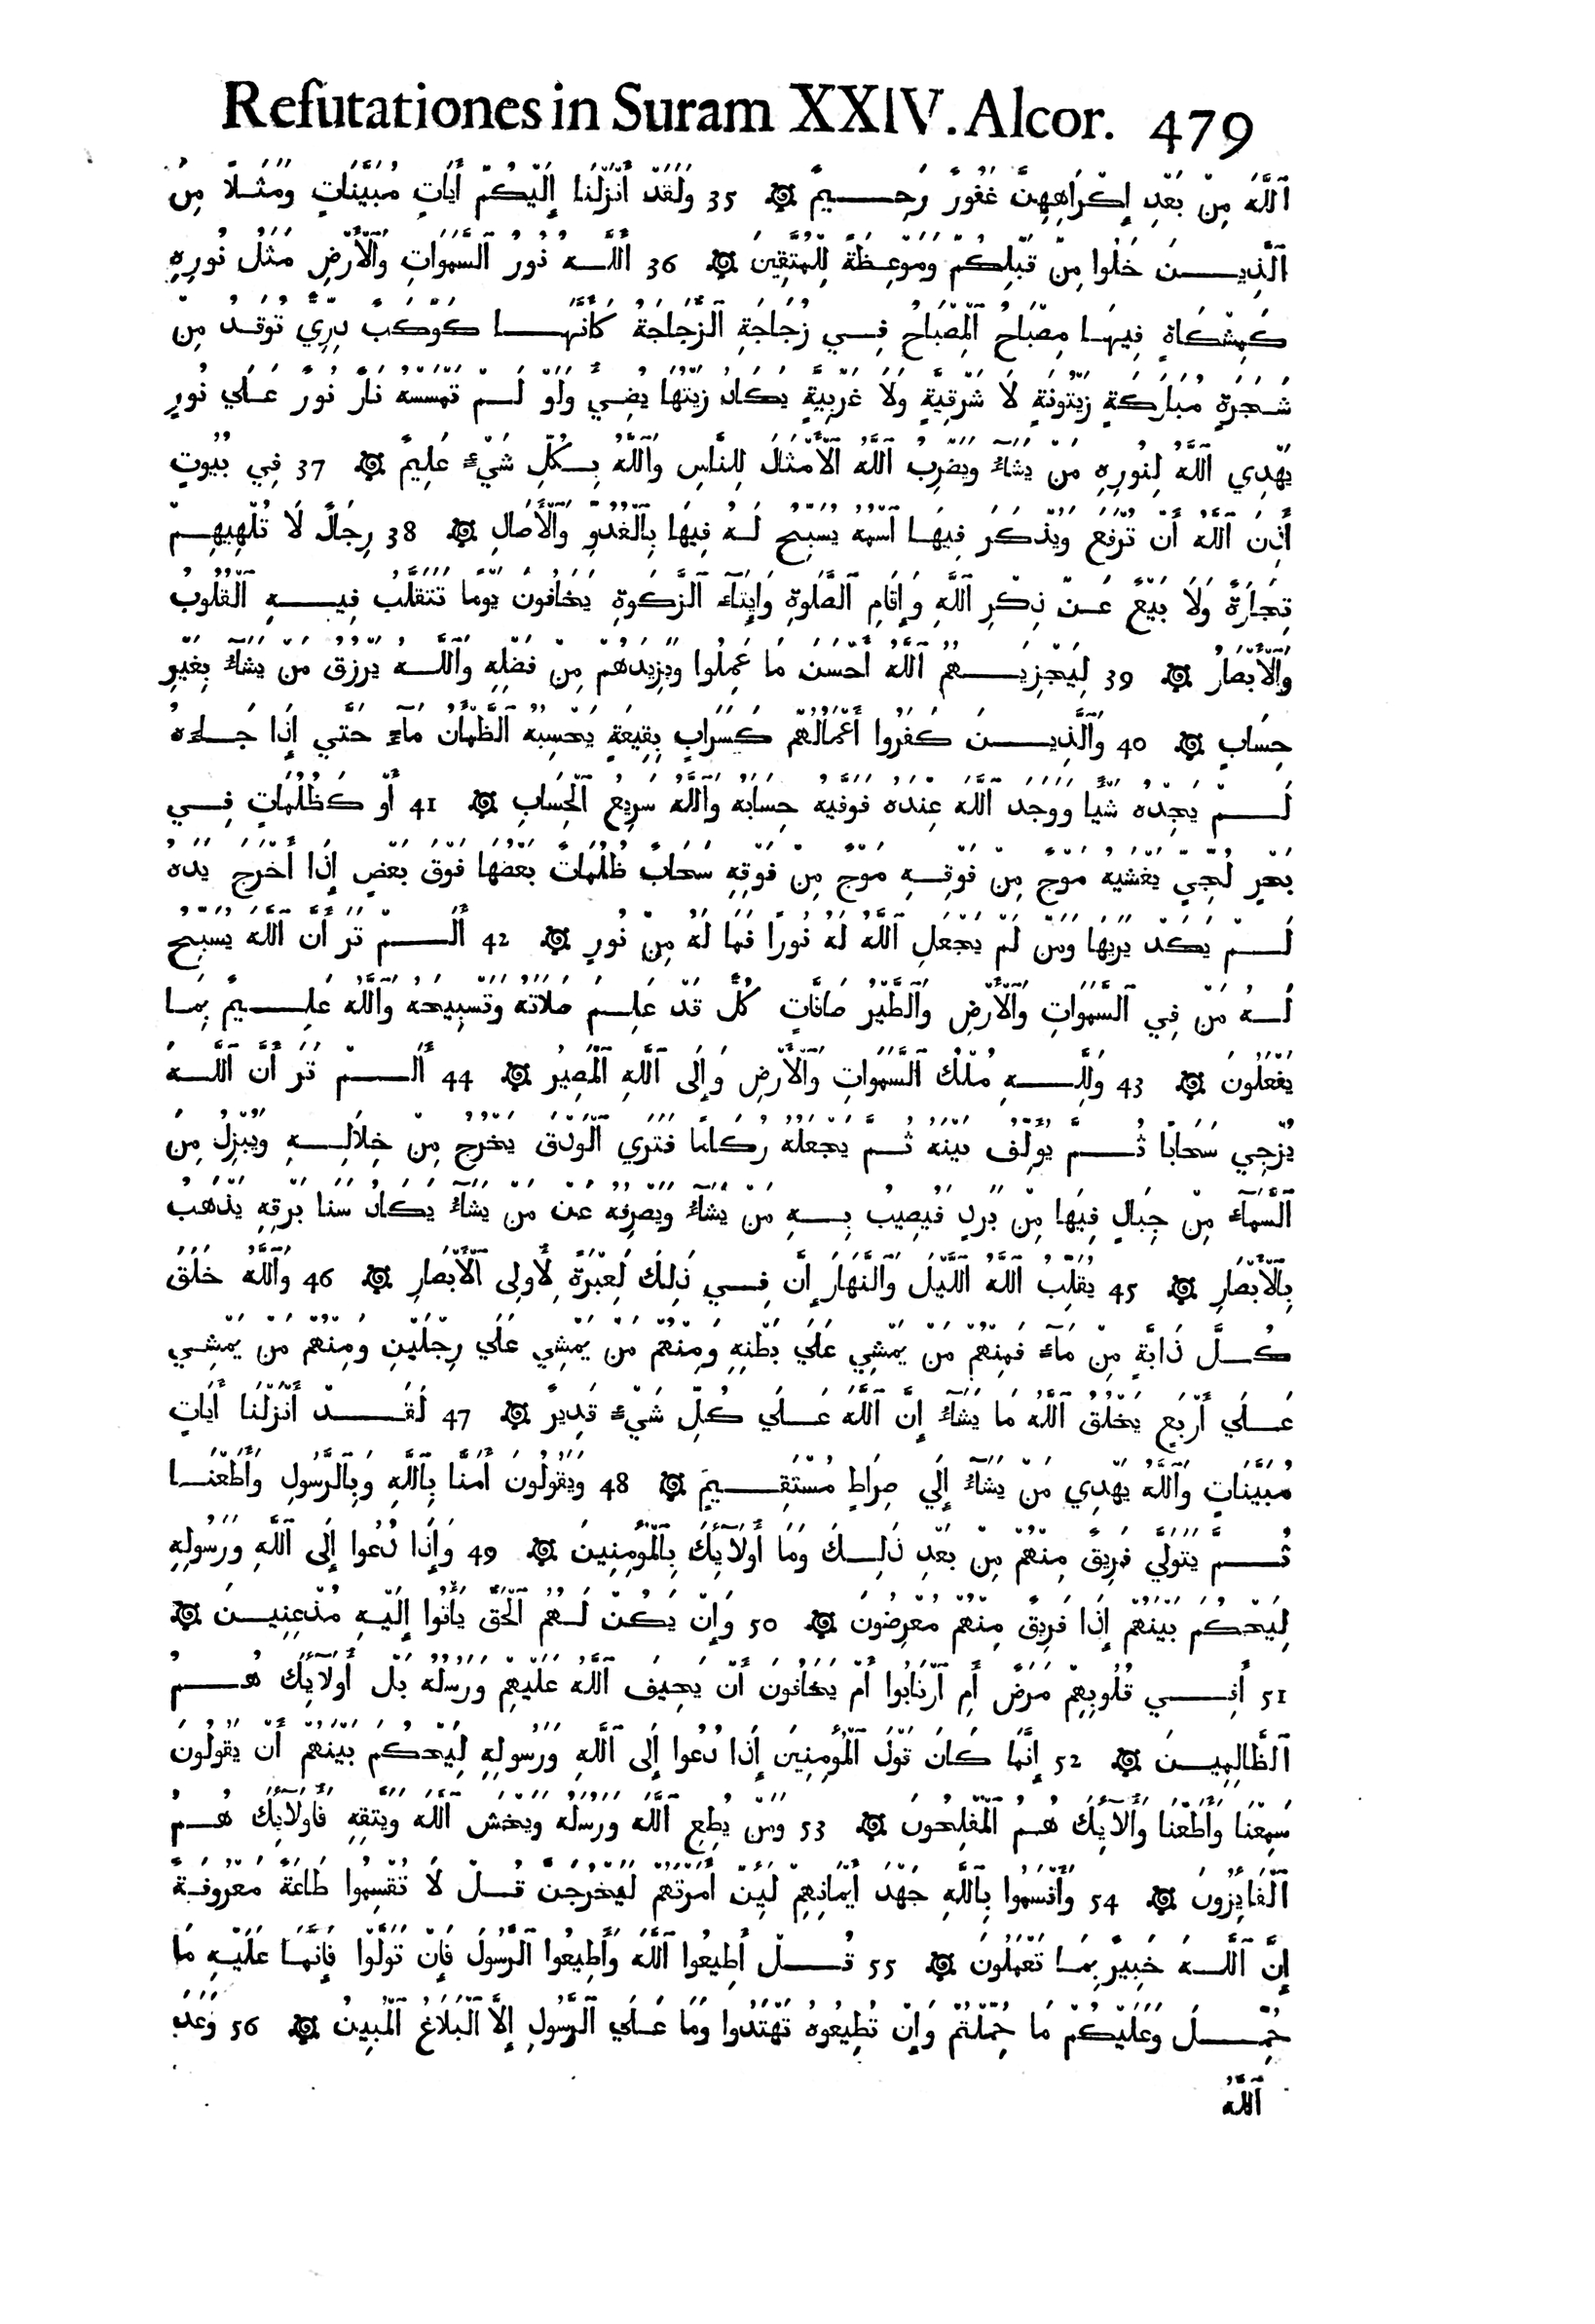 Refutationes in Suram XXIV. Alcor. 479
ٱللَّهَ مِنْ بَعْدِ إِكْرَاهِهِنَّ غَفُورٌ رَحِيمٌ ۞ 35 وَلَقَدْ أَنْزَلْنَا إِلَيْكُمْ أَيَاتٍ مُبَيَّنَاتٍ وَمَثَلاً مِنَ
ٱلَّذِينَ خَلَوا مِنْ قَبْلِكُمْ وَمَوْعِظَةً لِلْمُتَّقِينَ ۞ 36 أَللَّهُ نُورُ ٱلسَّمَوَاتِ وَٱلْأَرْضِ مَثَلُ نُورِهِ
كَمِشْكَاةٍ فِيهَا مِصْبَاحٌ ٱلْمِصْبَاحُ فِي زُجَاجَةٍ ٱلزُّجَاجَةُ كَأَنَّهَا كَوْكَبٌ دِرِّيٌّ تُوقَدُ مِنْ
شَجَرَةٍ مُبَارَكَةٍ زَيْتُونَةٍ لَا شَرْقِيَّةٍ وَلَا غَرْبِيَّةٍ يَكَادُ زَيْتُهَا يُضِيُ وَلَوْ لَمْ تَمْسَسْهُ نَارٌ نُورٌ عَلَي نُورٍ
يَهْدِي ٱللَّهُ لِنُورِهِ مَنْ يَشَآءُ وَيَضْرِبُ ٱللَّهُ ٱلْأَمْثَالَ لِلنَّاسِ وَٱللَّهُ بِكُلِّ شَيْءٍ عَلِيمٌ ۞ 37 فِي بُيُوتٍ
أَذِنَ ٱللَّهُ أَنْ تُرْفَعَ وَيُذْكَرَ فِيهَا ٱسْمُهُ يُسَبِّحُ لَهُ فِيهَا بِٱلْغُدُوِّ وَٱلْأَصَالِ ۞ 38 رِجَالٌ لَا تُلْهِيهِمْ
تِجَارَةٌ وَلَا بَيْعٌ عَنْ ذِكْرِ ٱللَّهِ وَإِقَامِ ٱلصَّلَوةِ وَإِيتَآءِ ٱلزَّكَوةِ يَخَافُونَ يَوْمًا تَتَقَلَّبُ فِيهِ ٱلْقُلُوبُ
وَٱلْأَبْصَارُ ۞ 39 لِيَجْزِيَهُمُ ٱللَّهُ أَحْسَنَ مَا عَمِلُوا وَيَزِيدَهُمْ مِنْ فَضْلِهِ وَٱللَّهُ يَرْزُقُ مَنْ يَشَآءُ بِغَيْرِ
حِسَابٍ ۞ 40 وَٱلَّذِينَ كَفَرُوا أَعْمَالُهُمْ كَسَرَابٍ بِقِيعَةٍ يَحْسِبُهُ ٱلظَّمْأَنُ مَآءً حَتَّي إِذَا جَاءَهُ
لَمْ يَجِدْهُ شَيْأً وَوَجَدَ ٱللَّهَ عِنْدَهُ فَوَفَّيهُ حِسَابَهُ وَٱللَّهُ سَرِيعُ ٱلْحِسَابِ ۞ 41 أَوْ كَظُلُمَاتٍ فِي
بَحْرٍ لُجِّيٍّ يَغْشَيهُ مَوْجٌ مِنْ فَوْقِهِ مَوْجٌ مِنْ فَوْقِهِ سَحَابٌ ظُلُمَاتٌ بَعْضُهَا فَوْقَ بَعْضٍ إِذَا أَخْرَجَ يَدَهُ
لَمْ يَكَدْ يَرَيهَا وَمَنْ لَمْ يَجْعَلِ ٱللَّهُ لَهُ نُورًا فَمَا لَهُ مِنْ نُورٍ ۞ 42 أَلَمْ تَرَ أَنَّ ٱللَّهَ يُسَبِّحُ
لَهُ مَنْ فِي ٱلسَّمَوَاتِ وَٱلْأَرْضِ وَٱلطَّيْرُ صَافَّاتٍ كُلٌّ قَدْ عَلِمَ صَلَاتَهُ وَتَسْبِيحَهُ وَٱللَّهُ عَلِيمٌ بِمَا
يَفْعَلُونَ ۞ 43 وَلِلَّهِ مُلْكُ ٱلسَّمَوَاتِ وَٱلْأَرْضِ وَإِلَى ٱللَّهِ ٱلْمَصِيرُ ۞ 44 أَلَمْ تَرَ أَنَّ ٱللَّهَ
يُزْجِي سَحَابًا ثُمَّ يُوَلِّفُ بَيْنَهُ ثُمَّ يَجْعَلُهُ رُكَامًا فَتَرَي ٱلْوَدْقَ يَخْرُجُ مِنْ خِلَالِهِ وَيُنْزِلُ مِنَ
ٱلسَّمَآءِ مِنْ جِبَالٍ فِيهَا مِنْ بَرَدٍ فَيُصِيبُ بِهِ مَنْ يَشَآءُ وَيَصْرِفُهُ عَنْ مَنْ يَشَآءُ يَكَادُ سَنَا بَرْقِهِ يَذْهَبُ
بِٱلْأَبْصَارِ ۞ 45 يُقَلِّبُ ٱللَّهُ ٱللَّيْلَ وَٱلنَّهَارَ إِنَّ فِي ذَلِكَ لَعِبْرَةً لِأُولِى ٱلْأَبْصَارِ ۞ 46 وَٱللَّهُ خَلَقَ
كُلَّ دَابَّةٍ مِنْ مَآءٍ فَمِنْهُمْ مَنْ يَمْشِي عَلَي بَطْنِهِ وَمِنْهُمْ مَنْ يَمْشِي عَلَي رِجْلَيْنِ وَمِنْهُمْ مَنْ يَمْشِي
عَلَي أَرْبَعٍ يَخْلُقُ ٱللَّهُ مَا يَشَآءُ إِنَّ ٱللَّهَ عَلَي كُلِّ شَيْءٍ قَدِيرٌ ۞ 47 لَقَدْ أَنْزَلْنَا أَيَاتٍ
مُبَيَّنَاتٍ وَٱللَّهُ يَهْدِي مَنْ يَشَآءُ إِلَي صِرَاطٍ مُسْتَقِيمٍ ۞ 48 وَيَقُولُونَ أَمَنَّا بِٱللَّهِ وَبِٱلرَّسُولِ وَأَطَعْنَا
ثُمَّ يَتَوَلَّي فَرِيقٌ مِنْهُمْ مِنْ بَعْدِ ذَلِكَ وَمَا أُولَآيِكَ بِٱلْمُؤْمِنِينَ ۞ 49 وَإِذَا دُعُوا إِلَى ٱللَّهِ وَرَسُولِهِ
لِيَحْكُمَ بَيْنَهُمْ إِذَا فَرِيقٌ مِنْهُمْ مُعْرِضُونَ ۞ 50 وَإِنْ يَكُنْ لَهُمُ ٱلْحَقُّ يَأْتُوا إِلَيْهِ مُذْعِنِينَ ۞
51 أَفِي قُلُوبِهِمْ مَرَضٌ أَمِ ٱرْتَابُوا أَمْ يَخَافُونَ أَنْ يَحِيفَ ٱللَّهُ عَلَيْهِمْ وَرَسُلُهُ بَلْ أُولَآيِكَ هُمُ
ٱلظَّالِمِينَ ۞ 52 إِنَّمَا كَانَ قَوْلَ ٱلْمُؤْمِنِينَ إِذَا دُعُوا إِلَى ٱللَّهِ وَرَسُولِهِ لِيَحْكُمَ بَيْنَهُمْ أَنْ يَقُولُونَ
سَمِعْنَا وَأَطَعْنَا وَأُلَآيِكَ هُمُ ٱلْمُفْلِحُونَ ۞ 53 وَمَنْ يُطِعِ ٱللَّهَ وَرَسُلَهُ وَيَخْشَ ٱللَّهَ وَيَتَّقِهِ فَأُولَآيِكَ هُمُ
ٱلْفَايِزُونَ ۞ 54 وَأَقْسَمُوا بِٱللَّهِ جَهْدَ أَيْمَانِهِمْ لَيِنْ أَمَرْتَهُمْ لَيَخْرُجَنَّ قُلْ لَا تُقْسِمُوا طَاعَةٌ مَعْرُوفَةٌ
إِنَّ ٱللَّهَ خَبِيرٌ بِمَا تَعْمَلُونَ ۞ 55 قُلْ أَطِيعُوا ٱللَّهَ وَأَطِيعُوا ٱلرَّسُولَ فَإِنْ تَوَلَّوْا فَإِنَّمَا عَلَيْهِ مَا
حُمِّلَ وَعَلَيْكُمْ مَا حُمِّلْتُمْ وَإِنْ تُطِيعُوهُ تَهْتَدُوا وَمَا عَلَي ٱلرَّسُولِ إِلَّا ٱلْبَلَاغُ ٱلْمُبِينُ ۞ 56 وَعَدَ
ٱللَّهُ